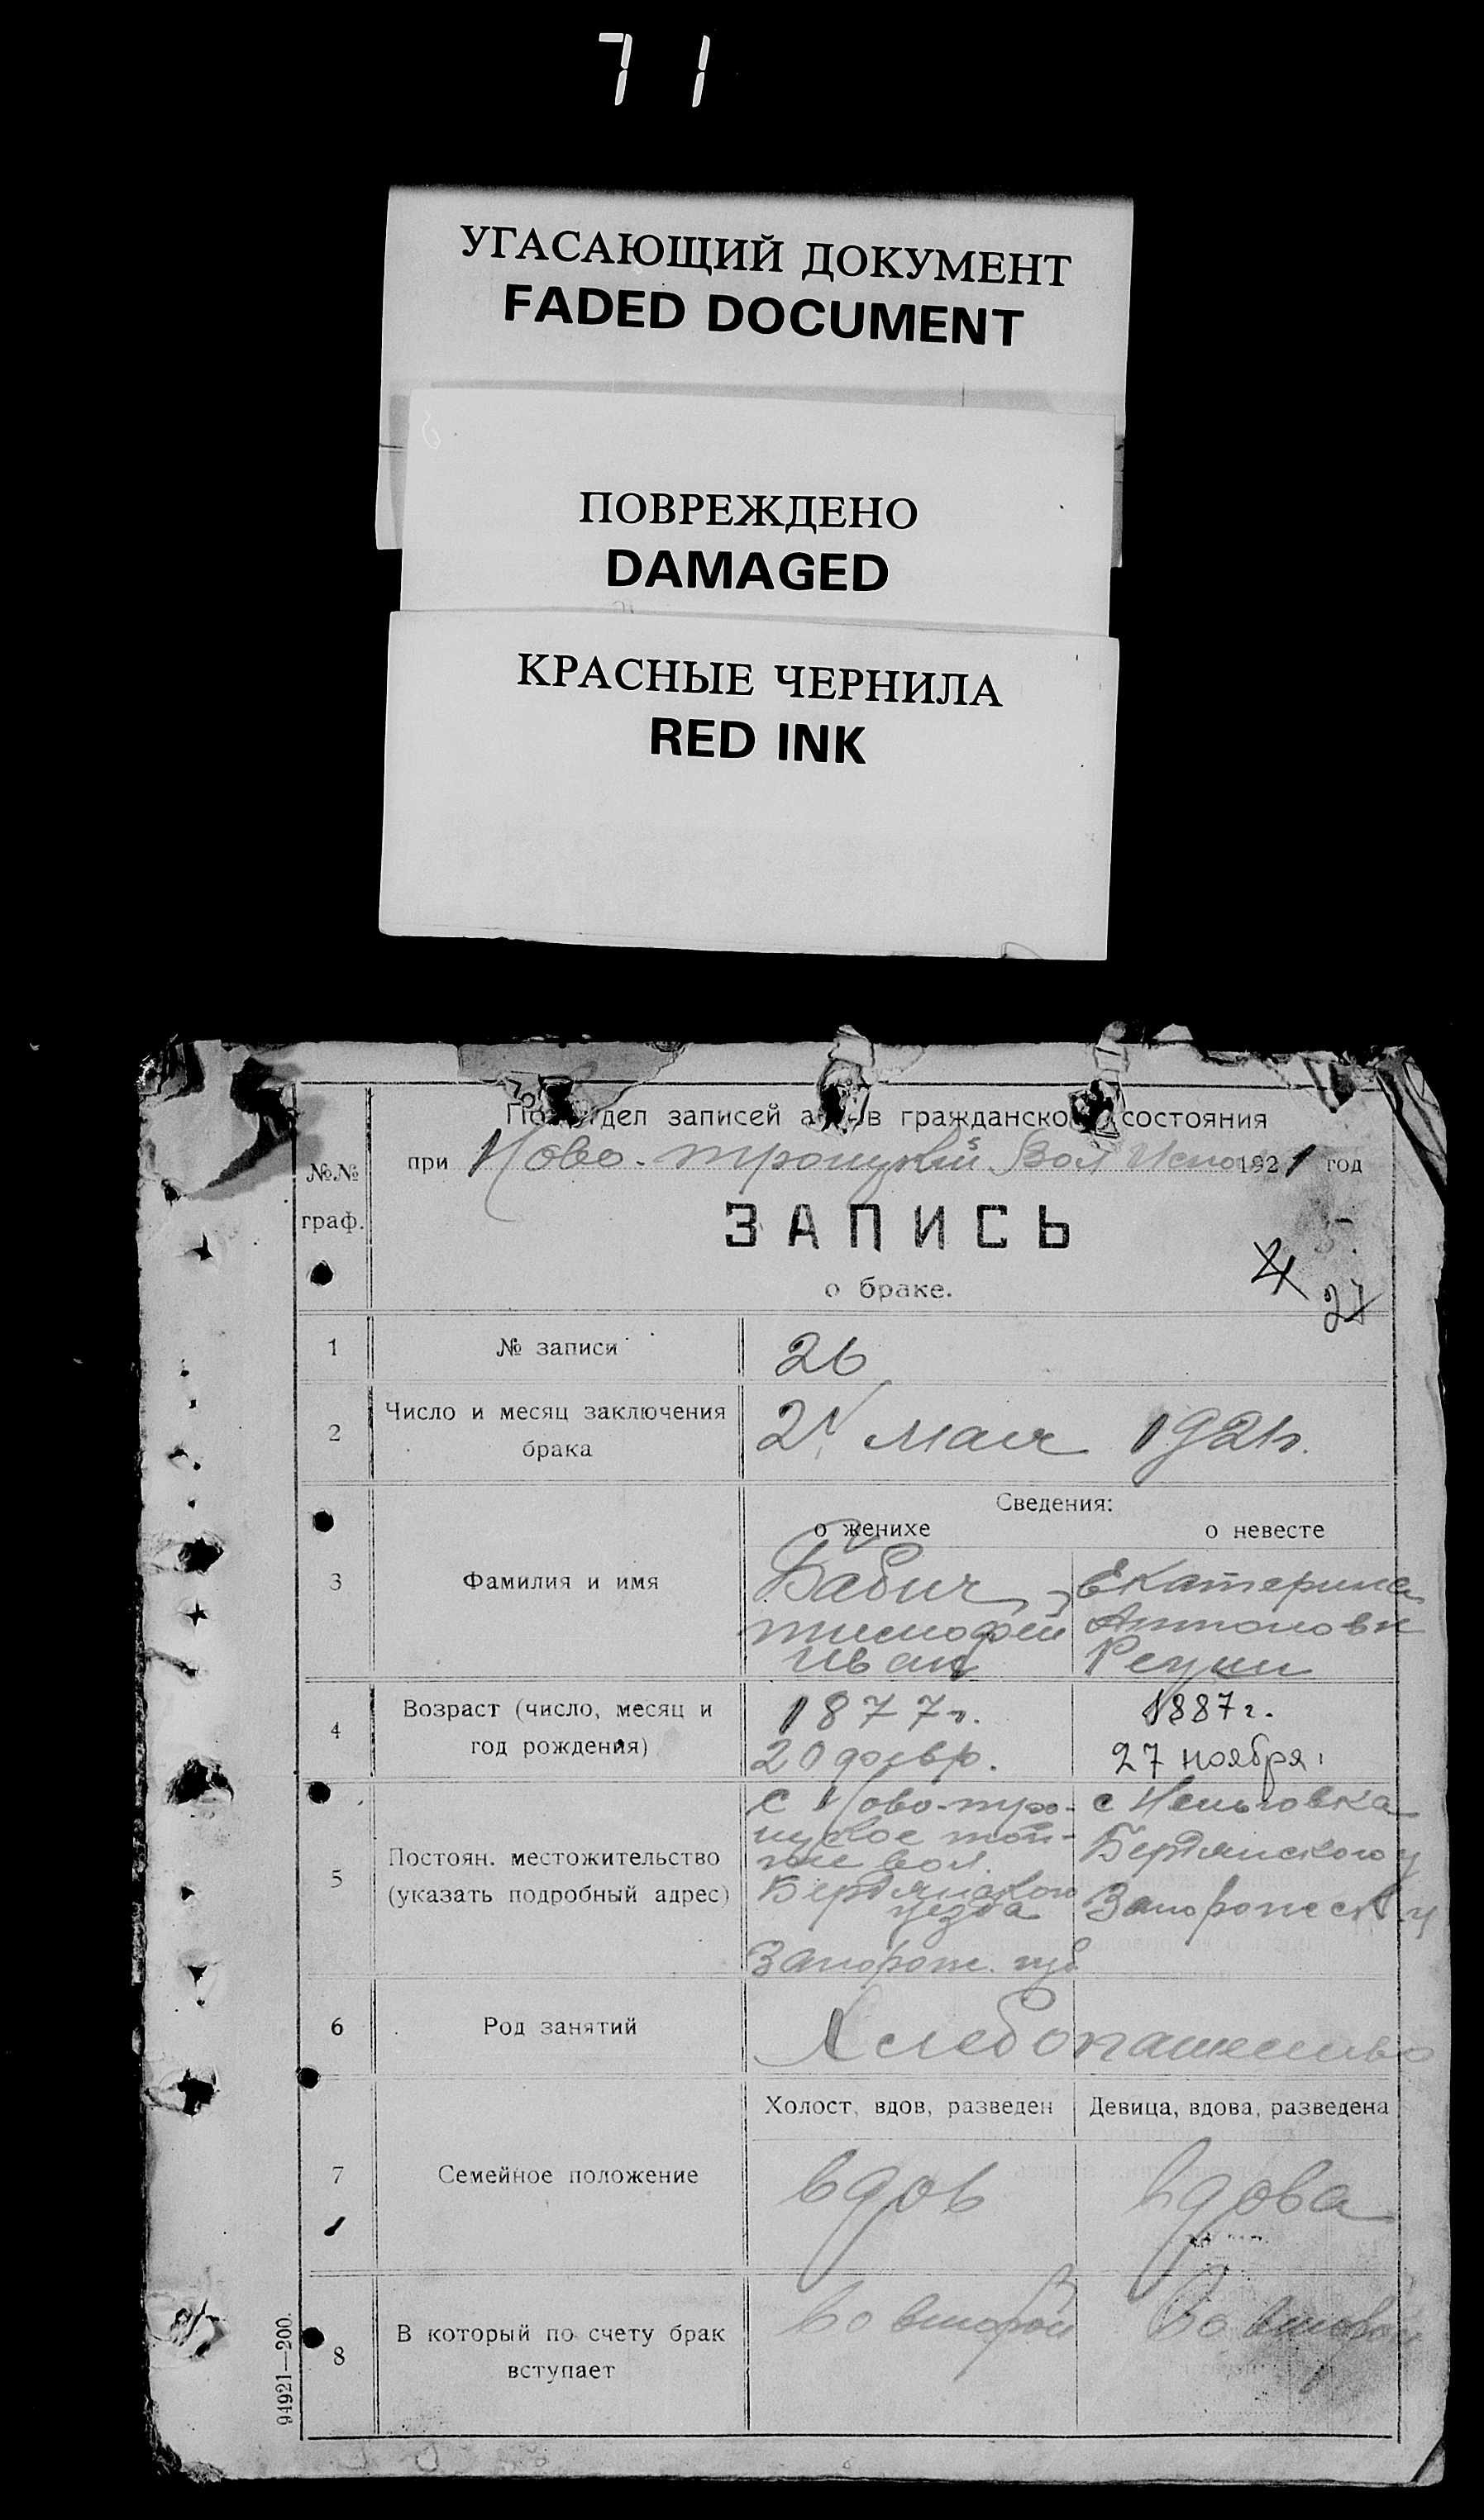 71
УГАСАЮЩИЙ ДОКУМЕНТ
FADED DOCUMENT
ПОВРЕЖДЕНО
DAMAGED
КРАСНЫЕ ЧЕРНИЛА
RED INK
дел записей в гражданско состояния
при Ново-троицкий Вол Испо 1921 год
№№
граф.
ЗАПИСЬ
о браке.
27
1 № записи 26
2 Число и месяц заключения
брака
мая 1921г.
Сведения:
о женихе о невесте
3 Фамилия и имя
Бабич Екатерина
тимофей Антоновн
Иван
4 Возраст (число, месяц и
год рождения)
1877г. 1887г.
20 27 ноября
5 Постоян. местожительство
(указать подробный адрес)
с Ново-тро- с
ицкое той-
же вол. Бердянского у
Бердянского
уезда
Запорож. губ
6 Род занятий Хлебопашество
Холост, вдов, разведен Девица, вдова, разведена
7 Семейное положение вдов вдова
8 В который по счету брак
вступает
во второй во второй
94921—200.